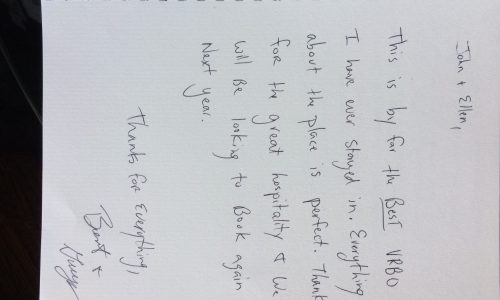 John + Ellen,
This is by far the BEST VRBO
I have ever stayed in. Everything
about the place is perfect. Thank
for the great hospitality & We
will Be looking to Book again
Next year.
Thanks for Everything,
Brent +